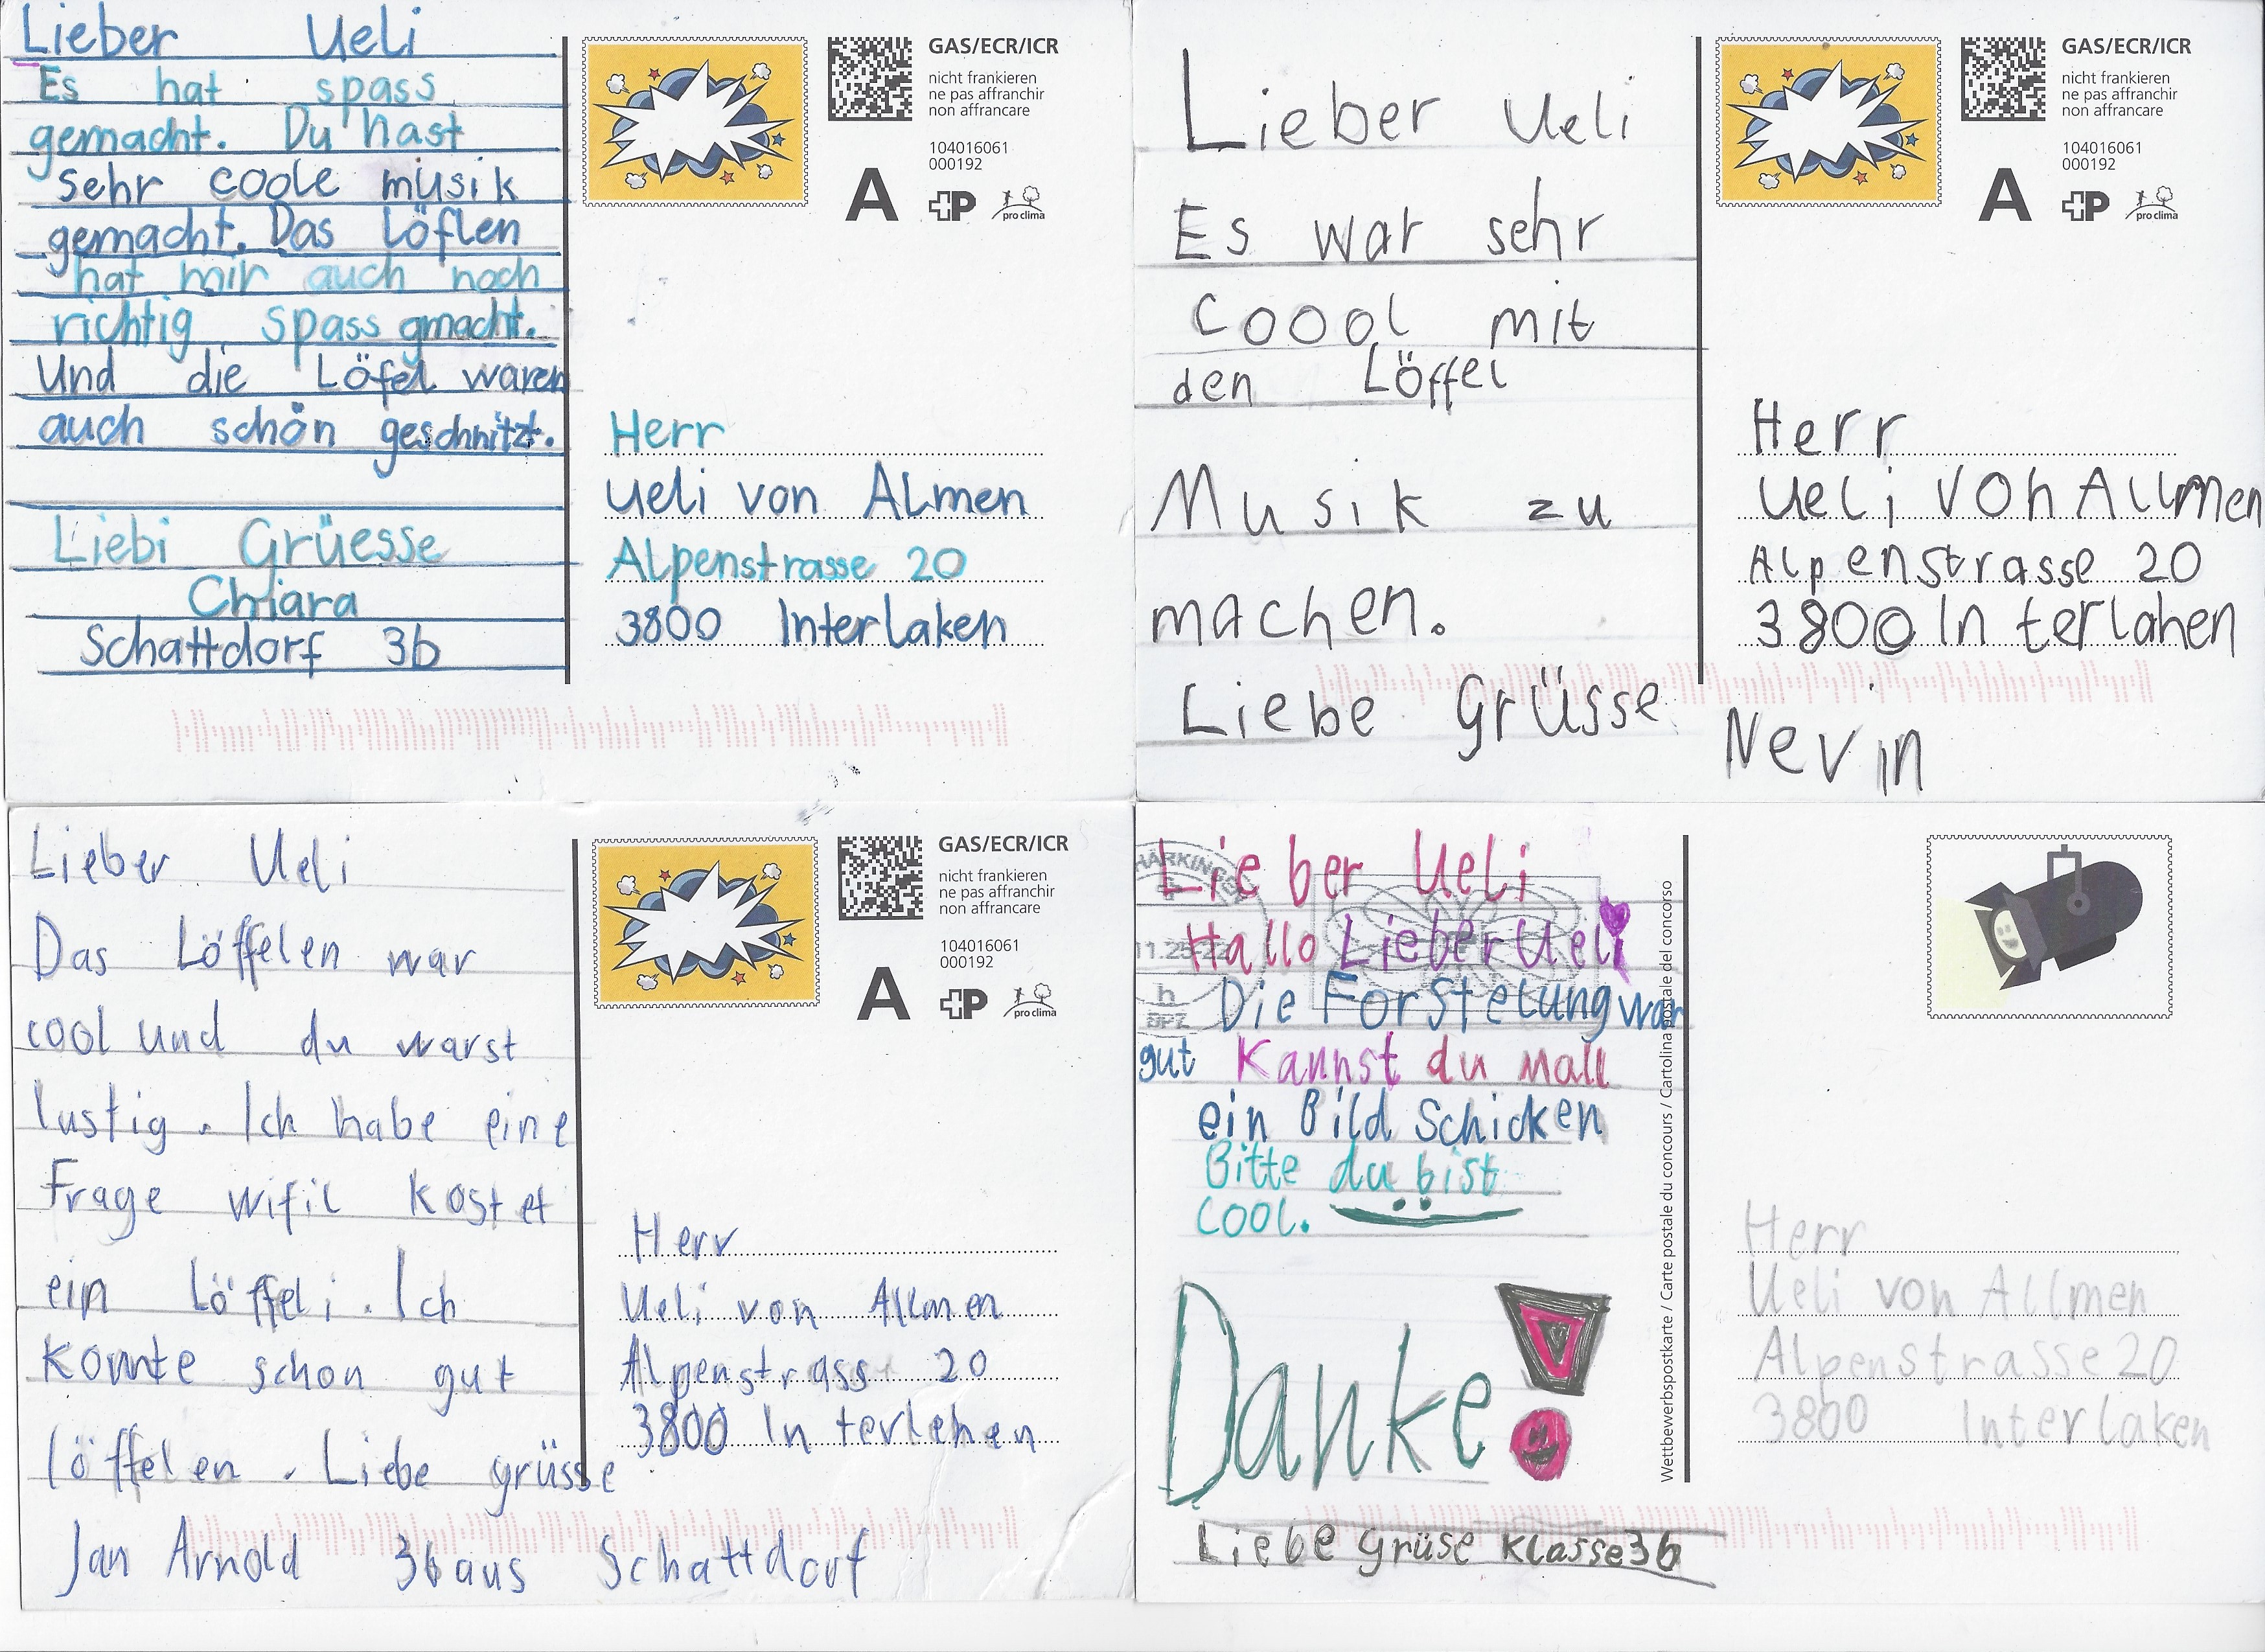 Lieber Ueli
Es hat spass
gemacht. Du hast
sehr coole musik
gemacht. Das Löflen
hat mir auch noch
richtig spass gmacht.
Und die Löfel waren
auch schön geschnitzt.
Liebi Grüesse
Chiara
Schattdorf 3b
GAS/ECR/ICR
nicht frankieren
ne pas affranchir
non affrancare
104016061
000192
A
P
pro clima
Herr
Ueli von ALmen
Alpenstrasse 20
3800 Interlaken
Lieber Ueli
Es war sehr
coool mit
den Löffel
Musik zu
machen.
Liebe Grüsse
Nevin
GAS/ECR/ICR
nicht frankieren
ne pas affranchir
non affrancare
104016061
000192
A
P
pro clima
Herr
Ueli von Allmen
Alpenstrasse 20
3800 In terlahen
Lieber Ueli
Das Löffelen war
cool und du warst
lustig. Ich habe eine
Frage wifil kostet
ein Löffeli. Ich
konnte schon gut
löffelen. Liebe grüsse
Jan Arnold 3b aus Schattdorf
GAS/ECR/ICR
nicht frankieren
ne pas affranchir
non affrancare
104016061
000192
A
P
pro clima
Herr
Ueli von Allmen
Alpenstrass 20
3800 In terlehen
Lieber Ueli
Hallo Lieber Ueli
Die Forstelung war
gut Kannst du mall
ein Bild Schicken
Bitte du bist
cool.
Danke!
Liebe Grüse Klasse 3b
Wettbewerbspostkarte / Carte postale du concours / Cartolina postale del concorso
Herr
Ueli von Allmen
Alpenstrasse 20
3800 Interlaken